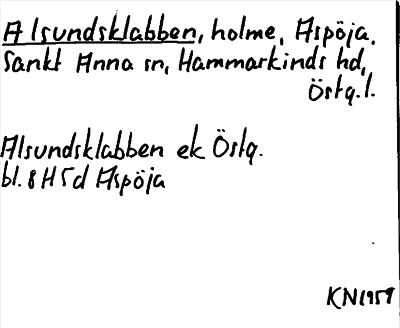 Alsundsklabben, holme, Aspöja,
Sankt Anna sn, Hammarkinds hd,
Östg. l.
Alsundsklabben ek Östg.
bl. 8H5d Aspöja
KN1959